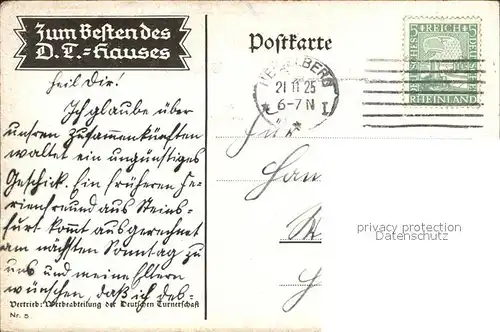 Zum Besten des
D. T.-Hauses
Postkarte
21 11 25
6-7 N
DEUTSCHES REICH
RHEINLAND
Heil Dir!
Ich glaube über
unsren Zusammenkünften
waltet ein ungünstiges
Geschick. Ein früherer Fe-
rienfreund aus Steins-
furt kommt ausgerechnet
am nächsten Sonntag zu
uns und meine Eltern
wünschen, daß ich des-
Vertrieb: Werbeabteilung der Deutschen Turnerschaft
Nr. 5
privacy protection
Datenschutz